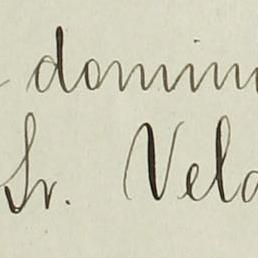 domin
Sr. Vela